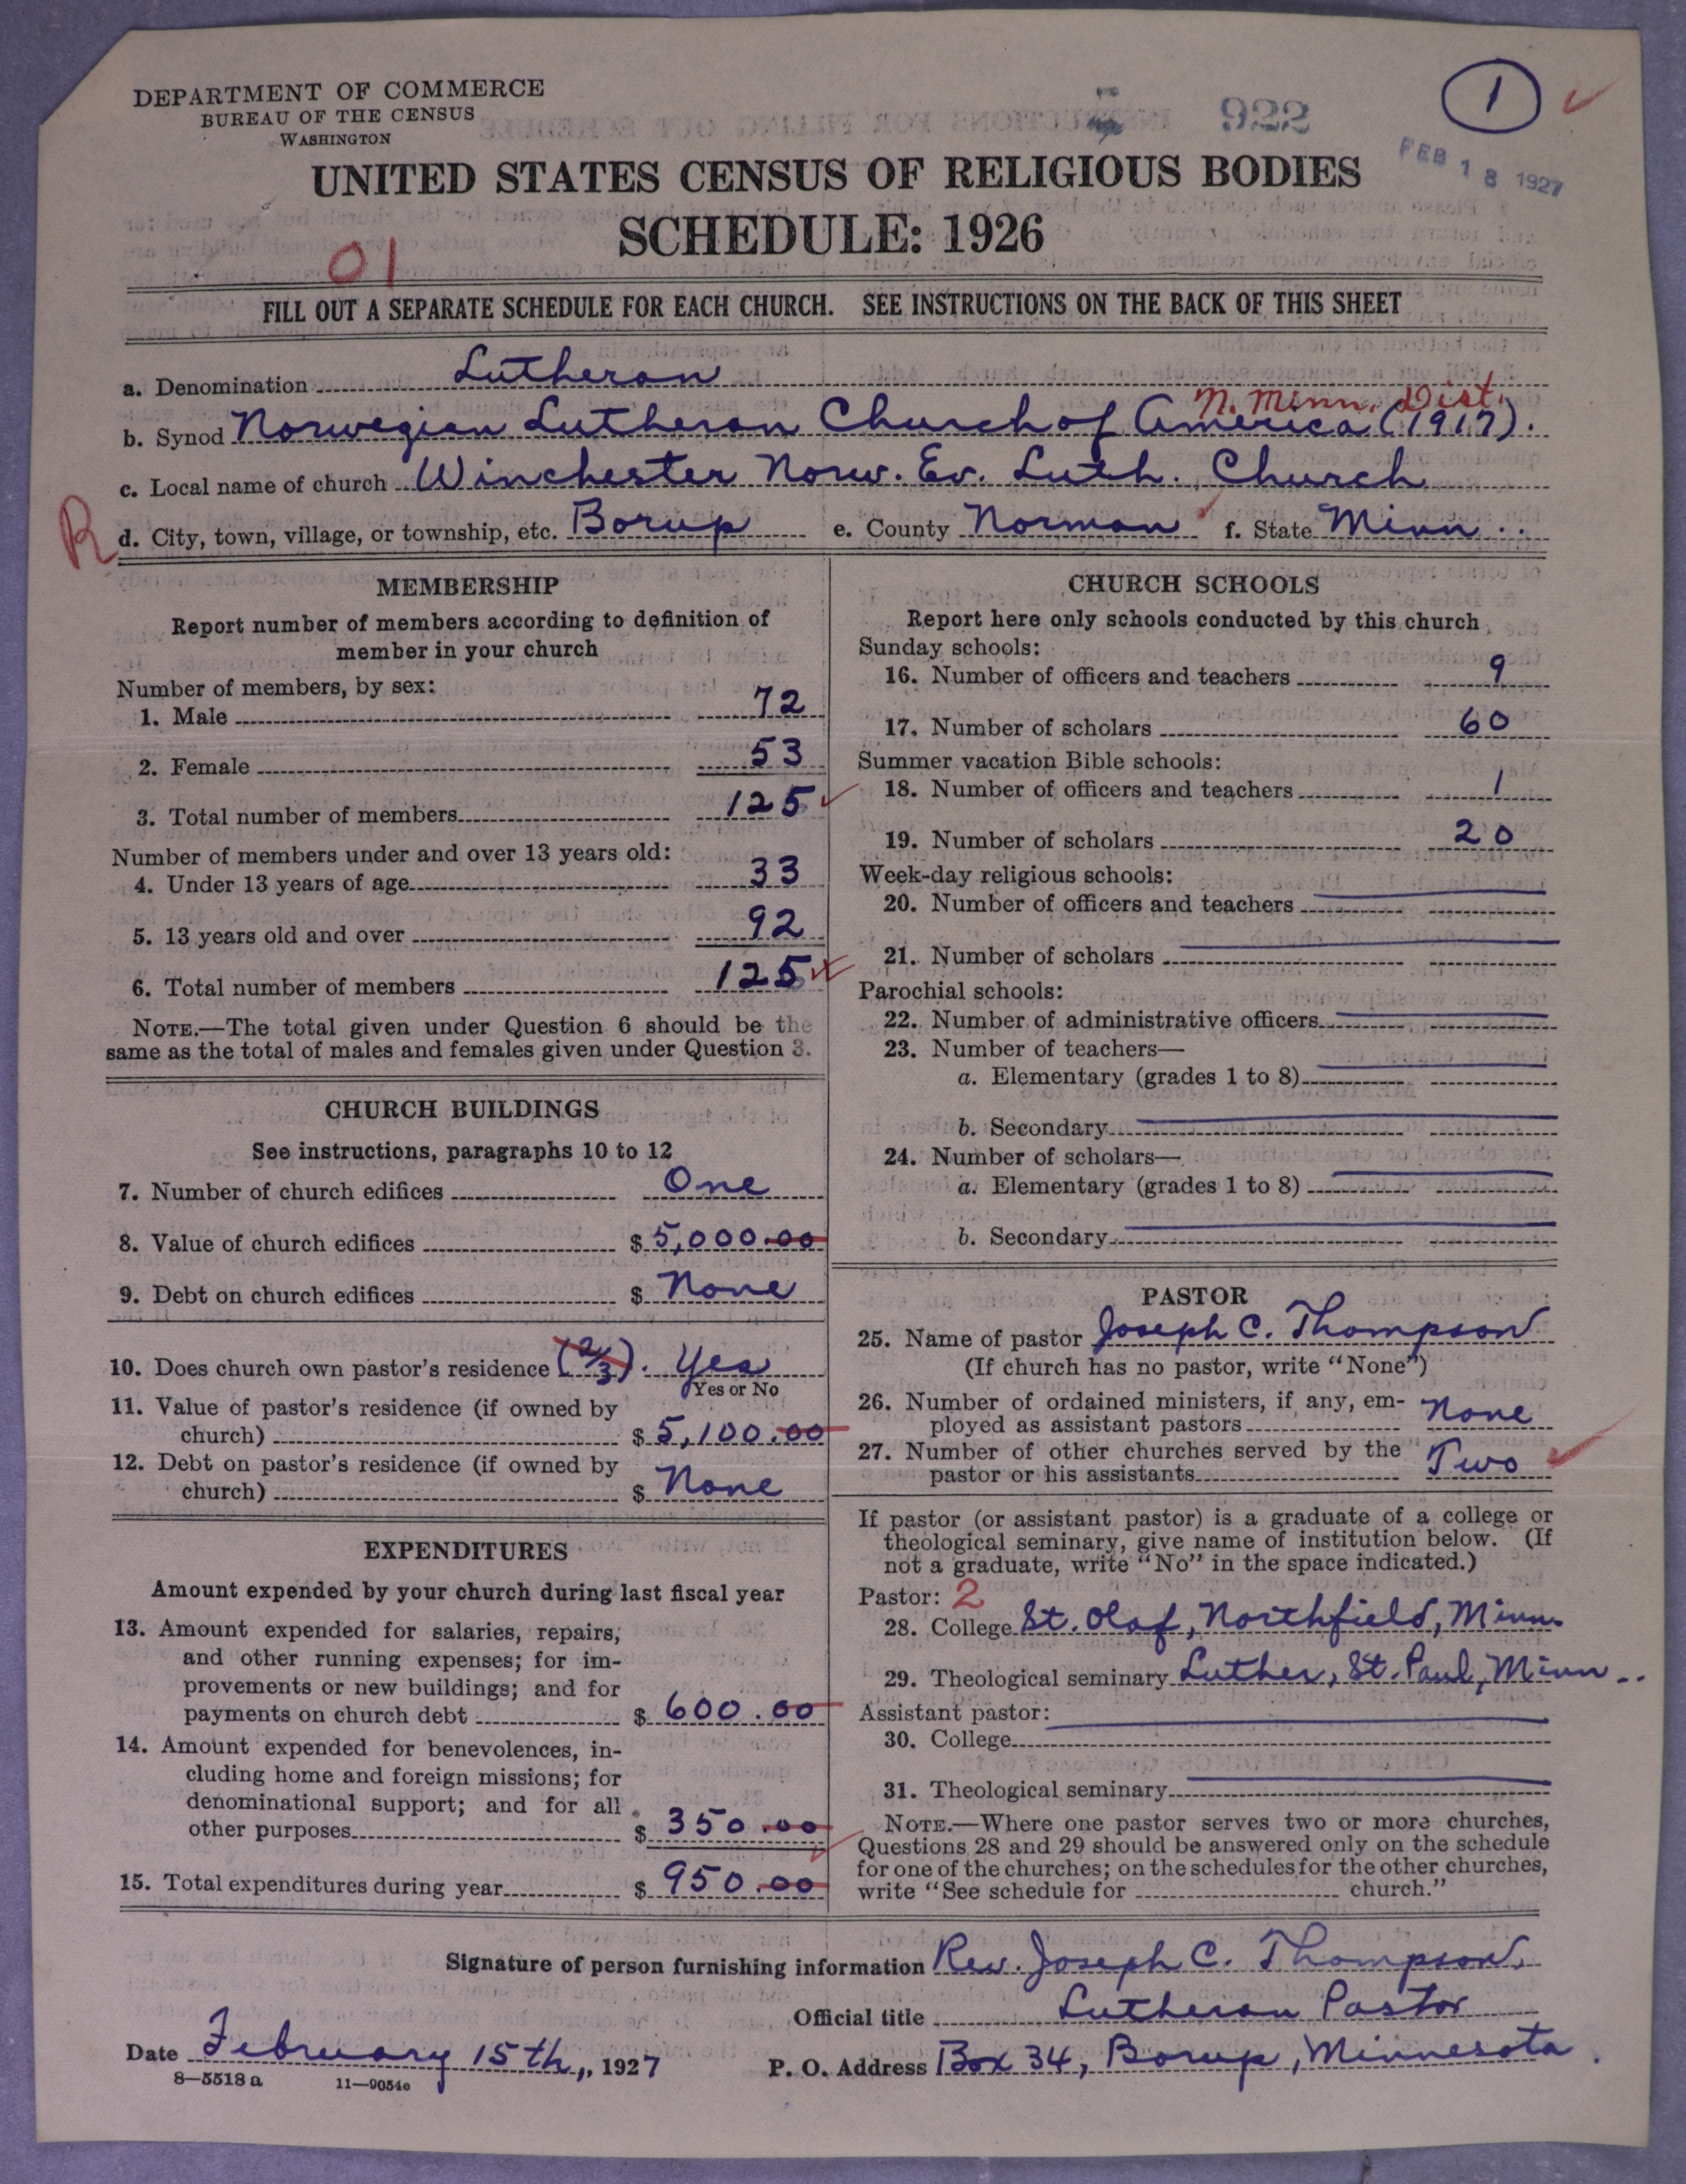 DEPARTMENT OF COMMERCE
BUREAU OF THE CENSUS
WASHINGTON
922
1
FEB 18 1927
UNITED STATES CENSUS OF RELIGIOUS BODIES
SCHEDULE: 1926
01
FILL OUT A SEPARATE SCHEDULE FOR EACH CHURCH. SEE INSTRUCTIONS ON THE BACK OF THIS SHEET
a. Denomination Lutheran
N. Minn. Dist.
b. Synod Norwegian Lutheran Church of America (1917).
c. Local name of church Winchester Norw. Ev. Luth. Church
R
d. City, town, village, or township, etc. Borup e. County Norman f. State Minn.
MEMBERSHIP
Report number of members according to definition of
member in your church
Number of members, by sex:
1. Male 72
2. Female 53
3. Total number of members 125
Number of members under and over 13 years old:
4. Under 13 years of age 33
5. 13 years old and over 92
6. Total number of members 125
NOTE.—The total given under Question 6 should be the
same as the total of males and females given under Question 3.
CHURCH BUILDINGS
See instructions, paragraphs 10 to 12
7. Number of church edifices One
8. Value of church edifices $5,000.00
9. Debt on church edifices $ None
10. Does church own pastor's residence (2/3). Yes
Yes or No
11. Value of pastor's residence (if owned by
church) $5,100.00
12. Debt on pastor's residence (if owned by
church) $ None
EXPENDITURES
Amount expended by your church during last fiscal year
13. Amount expended for salaries, repairs,
and other running expenses; for im-
provements or new buildings; and for
payments on church debt $ 600.00
14. Amount expended for benevolences, in-
cluding home and foreign missions; for
denominational support; and for all
other purposes $ 350.00
15. Total expenditures during year $ 950.00
CHURCH SCHOOLS
Report here only schools conducted by this church
Sunday schools:
16. Number of officers and teachers 9
17. Number of scholars 60
Summer vacation Bible schools:
18. Number of officers and teachers 1
19. Number of scholars 20
Week-day religious schools:
20. Number of officers and teachers
21. Number of scholars
Parochial schools:
22. Number of administrative officers
23. Number of teachers—
a. Elementary (grades 1 to 8)
b. Secondary
24. Number of scholars—
a. Elementary (grades 1 to 8)
b. Secondary
PASTOR
25. Name of pastor Joseph C. Thompson
(If church has no pastor, write "None")
26. Number of ordained ministers, if any, em-
ployed as assistant pastors None
27. Number of other churches served by the
pastor or his assistants Two
If pastor (or assistant pastor) is a graduate of a college or
theological seminary, give name of institution below. (If
not a graduate, write "No" in the space indicated.)
Pastor: 2
28. College St. Olaf, Northfield, Minn.
29. Theological seminary Luther, St. Paul, Minn.
Assistant pastor:
30. College
31. Theological seminary
NOTE.—Where one pastor serves two or more churches,
Questions 28 and 29 should be answered only on the schedule
for one of the churches; on the schedules for the other churches,
write "See schedule for church."
Signature of person furnishing information Rev. Joseph C. Thompson.
Official title Lutheran Pastor
Date February 15th, 1927 P. O. Address Box 34, Borup, Minnesota.
8-5518 a 11-9054e